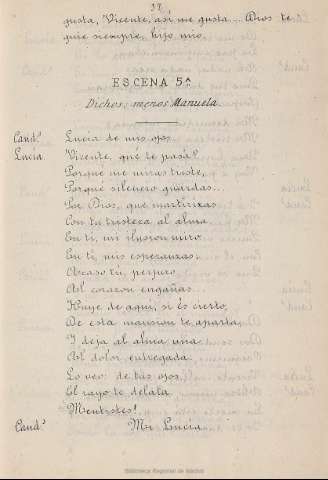 38
gusta, Vicente, así me gusta... Dios te
guíe siempre, hijo mío.
ESCENA 5ª
Dichos, menos Manuela
Candº Lucía de mis ojos
Lucía Vicente, qué te pasa?
Porqué me miras triste,
Porqué silencio guardas...
Por Dios, que martirizas
Con tu tristeza al alma.
En ti, mi ilusion miro
En ti, mis esperanzas.
Acaso tú, perjuro
Al corazon engañas...
Huye de aquí, si es cierto,
De esta mansion te aparta,
I deja al alma mia
Al dolor entregada
Lo veo: de tus ojos
El rayo te delata.
Mentistes!
Candº Mi Lucía...
Biblioteca Regional de Madrid